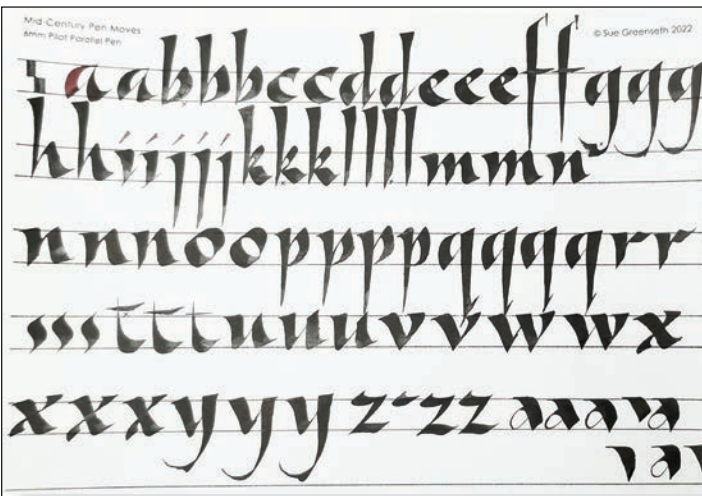 Mid-Century Pen Moves
6mm Pilot Parallel Pen
© Sue Greenseth 2022
aabbbccddeeeffggg
hhiijjjkkkllllmmn
nnnooppppqqqqrr
ssstttuuuvvwwx
xxxyyyzzzaaa